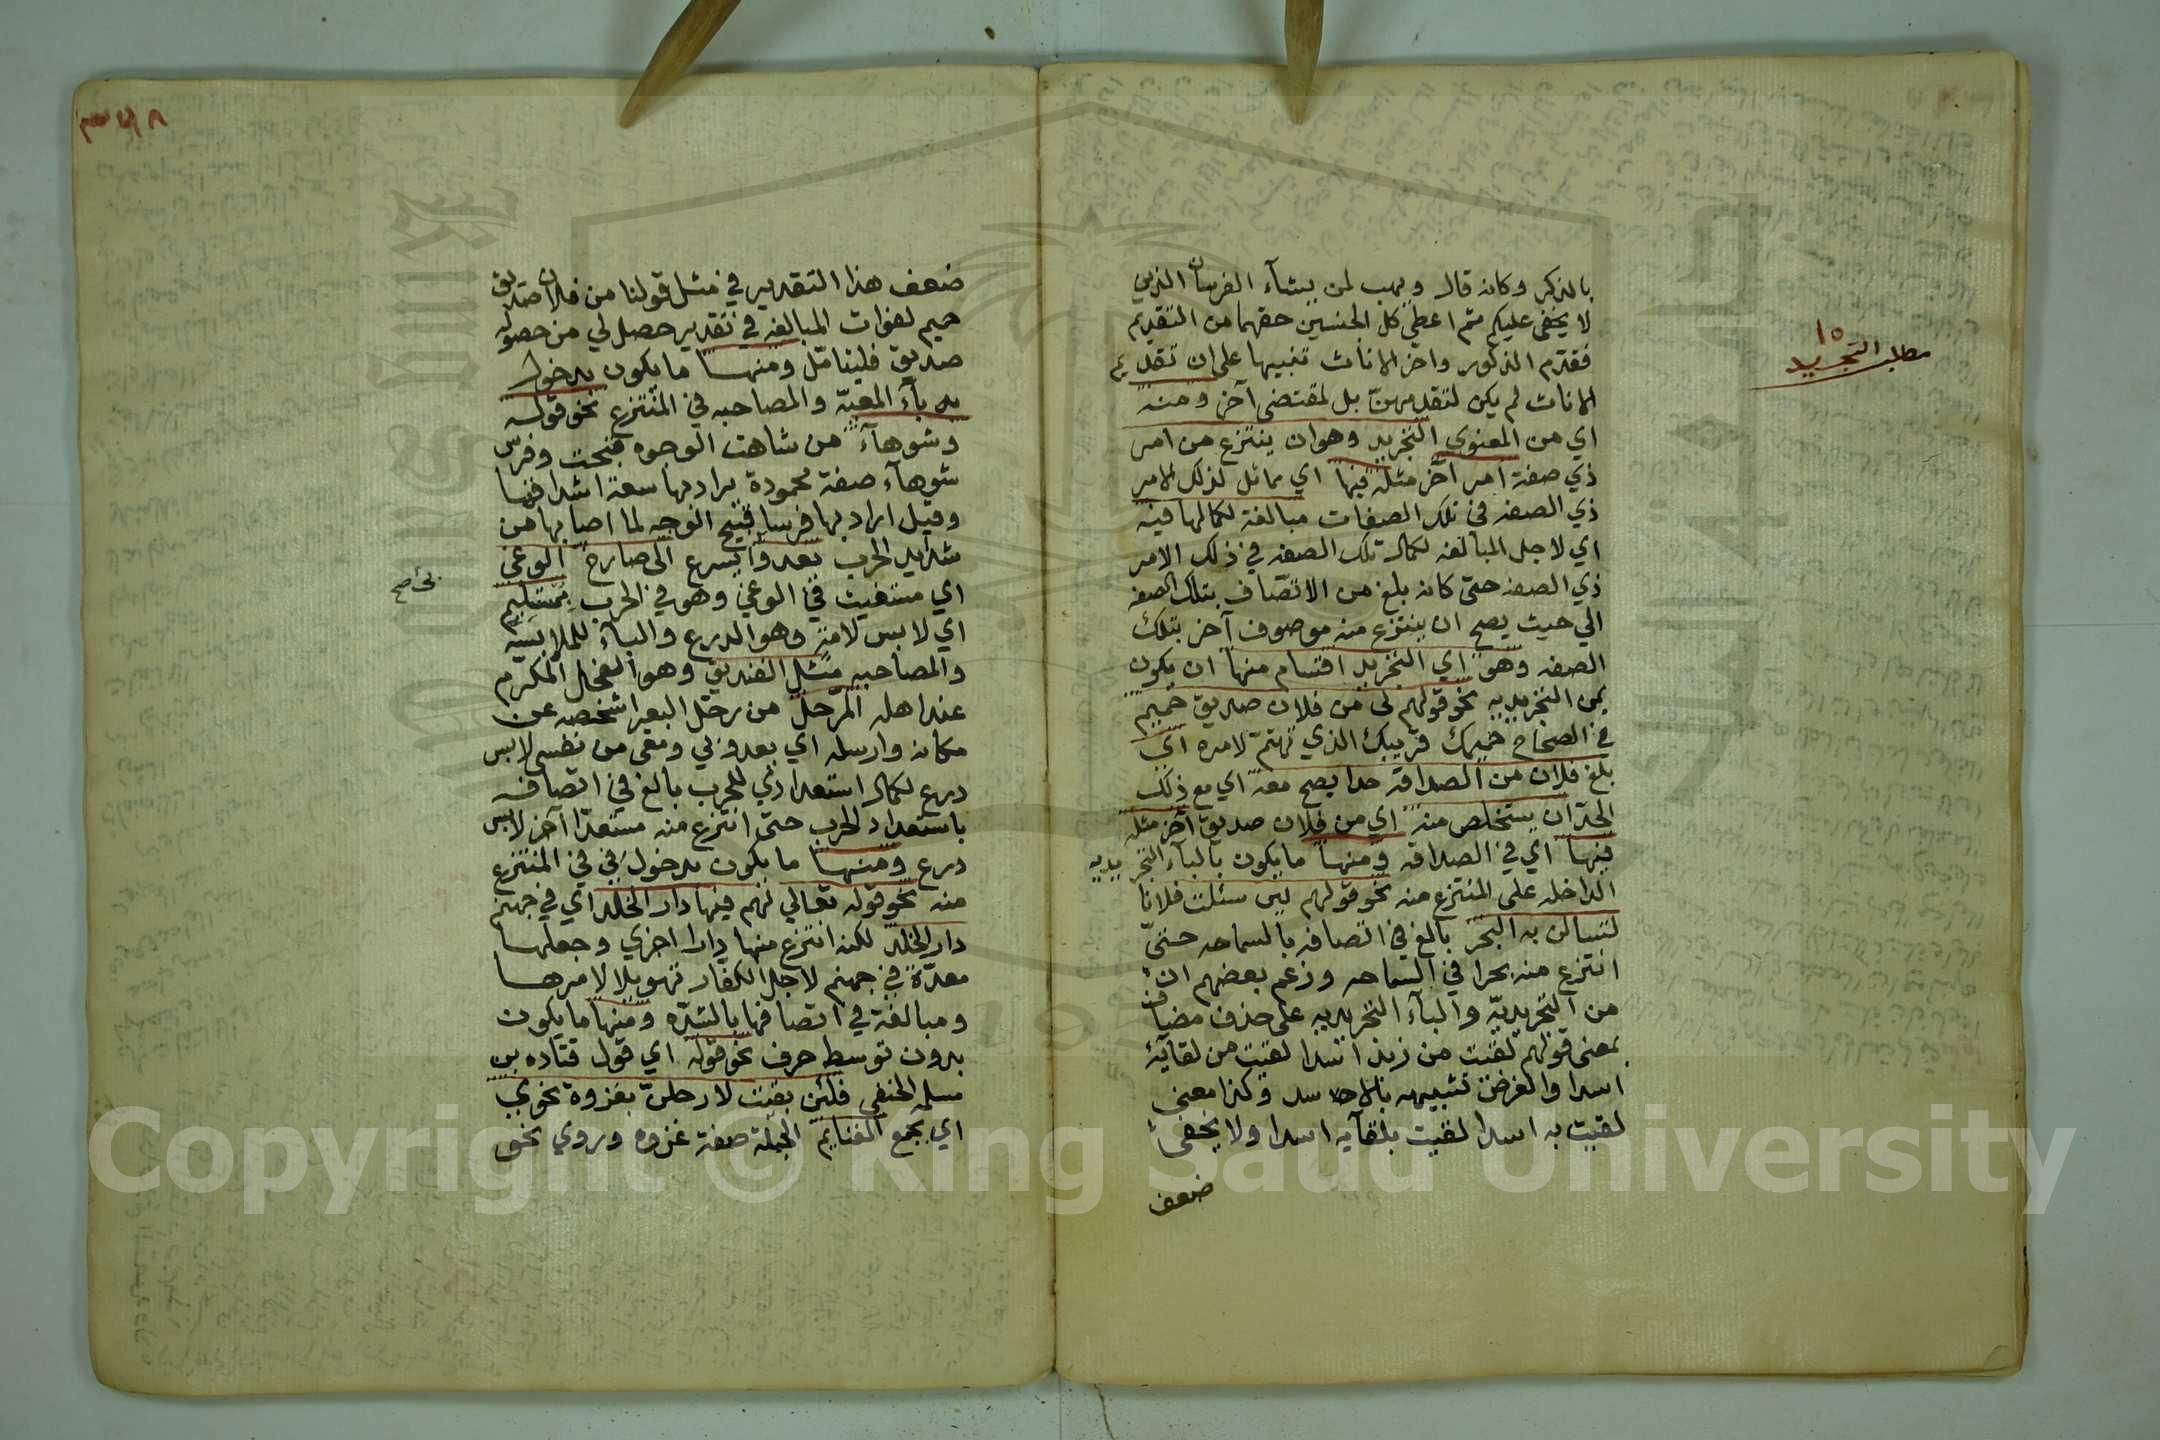 بالذكر وكانه قال ويهب لمن يشآء الفرسان الذين
لا يخفى عليكم ثم اعطي كل الجنسين حقهما من التقديم
فقدم الذكور واخر الاناث تنبيها على ان تقديم
الاناث لم يكن لتقدمهن بل لمقتضى آخر ومنه
اي من المعنوي التجريد وهو ان ينتزع من امر
ذي صفة امر آخر مثله فيها اي مماثل لذلك الامر
ذي الصفه في تلك الصفات مبالغة لكمالها فيه
اي لاجل المبالغه لكمال تلك الصفه في ذلك الامر
ذي الصفه حتى كانه بلغ من الاتصاف بتلك الصفه
الي حيث يصح ان ينتزع منه موصوف آخر بتلك
الصفه وهو اي التجريد اقسام منها ان يكون
بمن التجريديه نحو قولهم لى من فلان صديق حميم
في الصحاح حميمك قريبك الذي تهتم لامره اي
بلغ فلان من الصداقه حدا يصح معه اي مع ذلك
الحد ان يستخلص منه اي من فلان صديق آخر مثله
فيها اي في الصداقه ومنها ما يكون بالبآء التجريديه
الداخله على المنتزع منه نحو قولهم لئن سئلت فلانا
لتسالن به البحر بالغ في اتصافه بالسماحه حتى
انتزع منه بحرا في السماحه وزعم بعضهم ان
من التجريديه والبآء التجريديه على حذف مضاف
بمعنى قولهم لقيت من زيد اسدا لقيت من لقآئه
اسدا والغرض تشبيهه بالاسد وكذا معنى
لقيت به اسدا لقيت بلقآيه اسدا ولا يخفى
ضعف
مطلب التجريد
١٥
٣٧٨
ضعف هذا التقدير في مثل قولنا من فلان صديق
حميم لفوات المبالغه في تقدير حصل لي من حصوله
صديق فليتامل ومنها ما يكون بدخول
به بآء المعيه والمصاحبه في المنتزع نحو قوله
وشوهآء من شاهت الوجوه قبحت وفرس
شوهآء صفة محمودة يراد بها سعة اشداقها
وقيل اراد بها فرسا قبيح الوجه لما اصابها من
شدايد الحرب تعدوا يسرع الى صارخ الوغى
بى صح
اي مستغيث في الوغى وهو في الحرب بمستليم
اي لابس لامة وهو الدرع والبآء للملابسه
والمصاحبه مثل الفنديق وهو الفحل المكرم
عند اهله المرحل من رحل البعير اشخصه عن
مكانه وارسله اي يعدو بي ومعي من نفسى لابس
درع لكمال استعدادي للحرب بالغ في اتصافه
باستعداد للحرب حتى انتزع منه مستعدا آخر لابس
درع ومنها ما يكون بدخول في في المنتزع
منه نحو قوله تعالي لهم فيها دار الخلد اي في جهنم
دار الخلد لكنه انتزع منها دارا اخري وجعلها
معدة في جهنم لاجل الكفار تهويلا لامرها
ومبالغة في اتصافها بالشده ومنها ما يكون
بدون توسط حرف نحو قوله اي قول قتاده بن
مسلمه الحنفي فلئن بقيت لارحلن بغزوة تحوي
اي يجمع الغنايم الجملة صفة غزوه وروي نحو